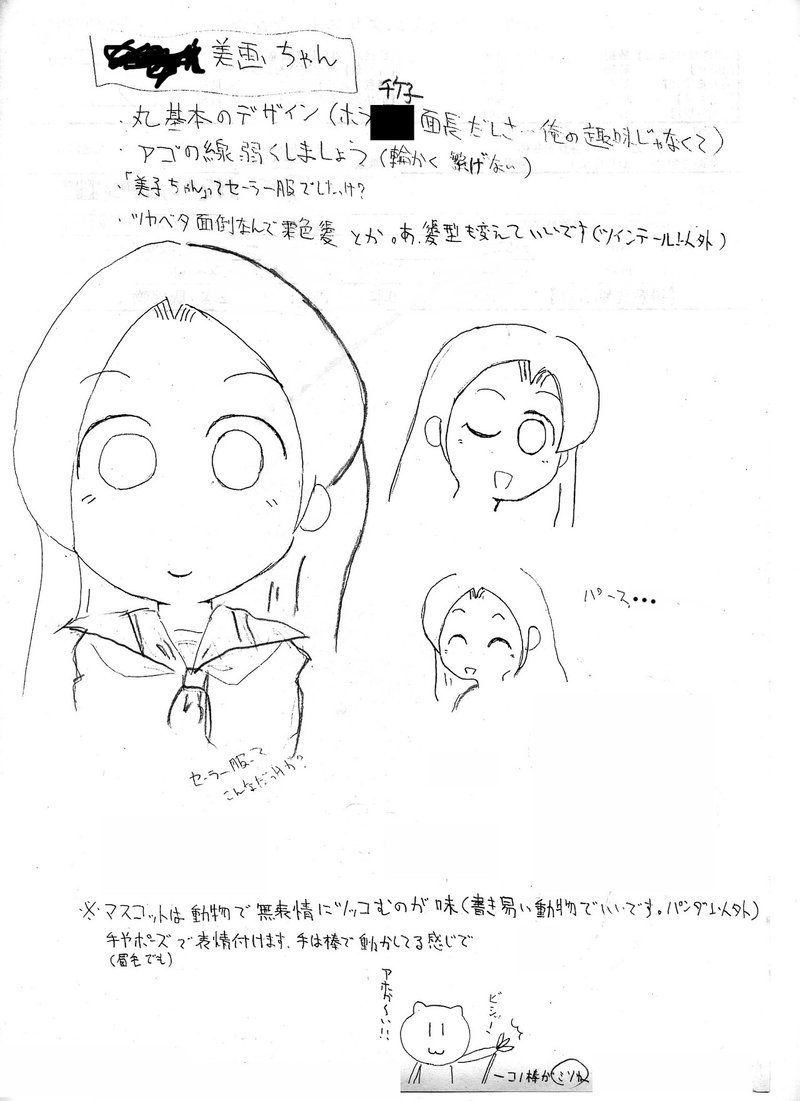 美画ちゃん
千ケ子
・丸基本のデザイン(ホラ 面長だしさ…俺の趣味じゃなくて)
・アゴの線弱くしましょう(輪かく繋げない)
・「美子ちゃん」ってセーラー服でしたっけ?
・ツヤベタ面倒なんで栗色髪とか。あ、髪型も変えていいです(ツインテール以外)
パース・・・
セーラー服って
こんなだっけか?
※マスコットは動物で無表情にツッコむのが味(書き易い動物でいいです。パンダ以外)
手やポーズで表情付けます。手は棒で動かしてる感じで
(眉毛でも)
アホか〜い!!
ビシィー
←コノ棒がミソね